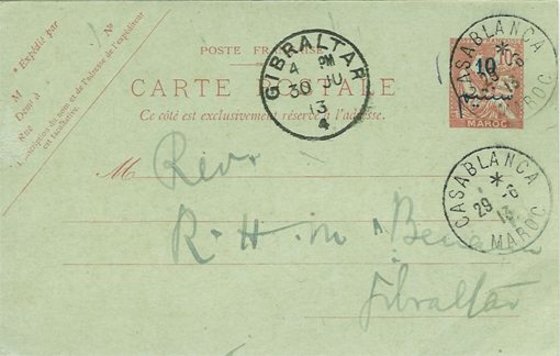 * Expédié par
M
Demt à
Rue
No
L'inscription du nom et de l'adresse de l'expéditeur
est facultative.
POSTE FRANÇAISE
CARTE POSTALE
Ce côté est exclusivement réservé à l'adresse.
GIBRALTAR
4 PM
30 JU
13
4
CASABLANCA
*
29 -6
13
MAROC
10
MAROC
CASABLANCA
*
29 -6
13
MAROC
M
Revr
R. H. M.
Gibraltar